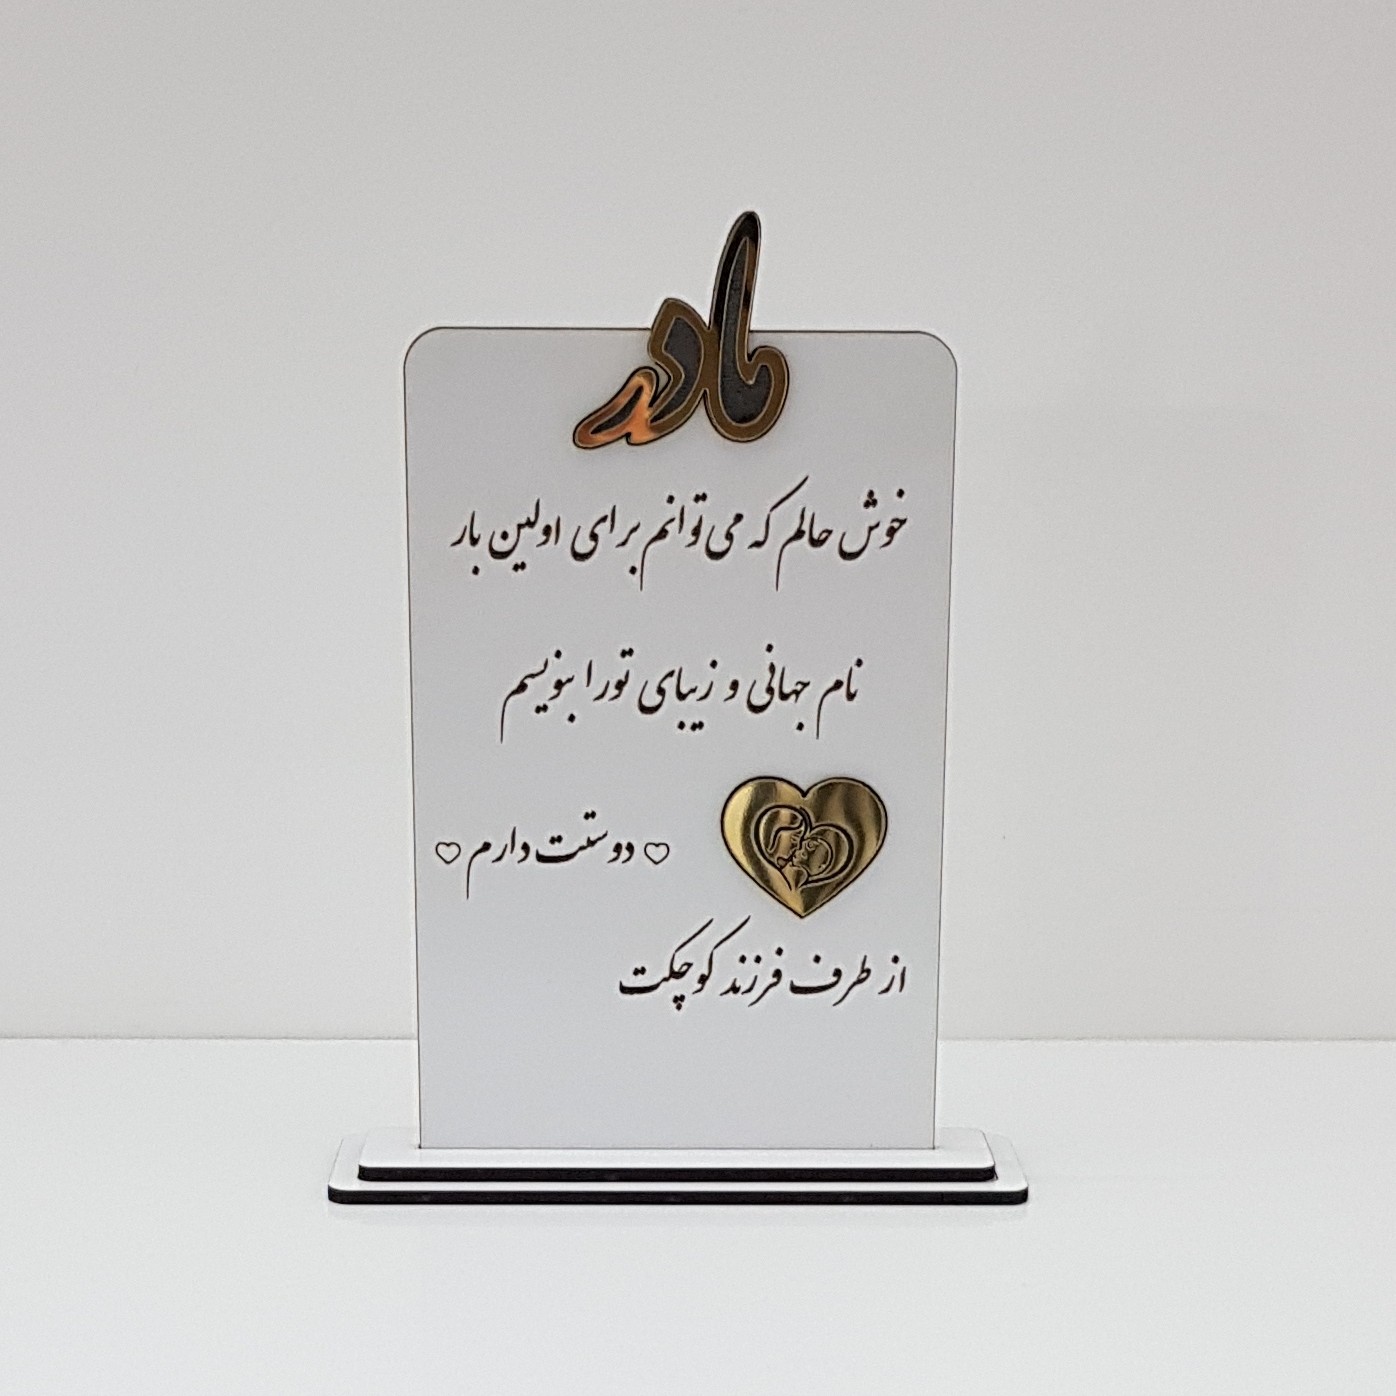 مادر
خوش حالم که می توانم برای اولین بار
نام جهانی و زیبای تورا بنویسم
♡ دوستت دارم ♡
از طرف فرزند کوچکت